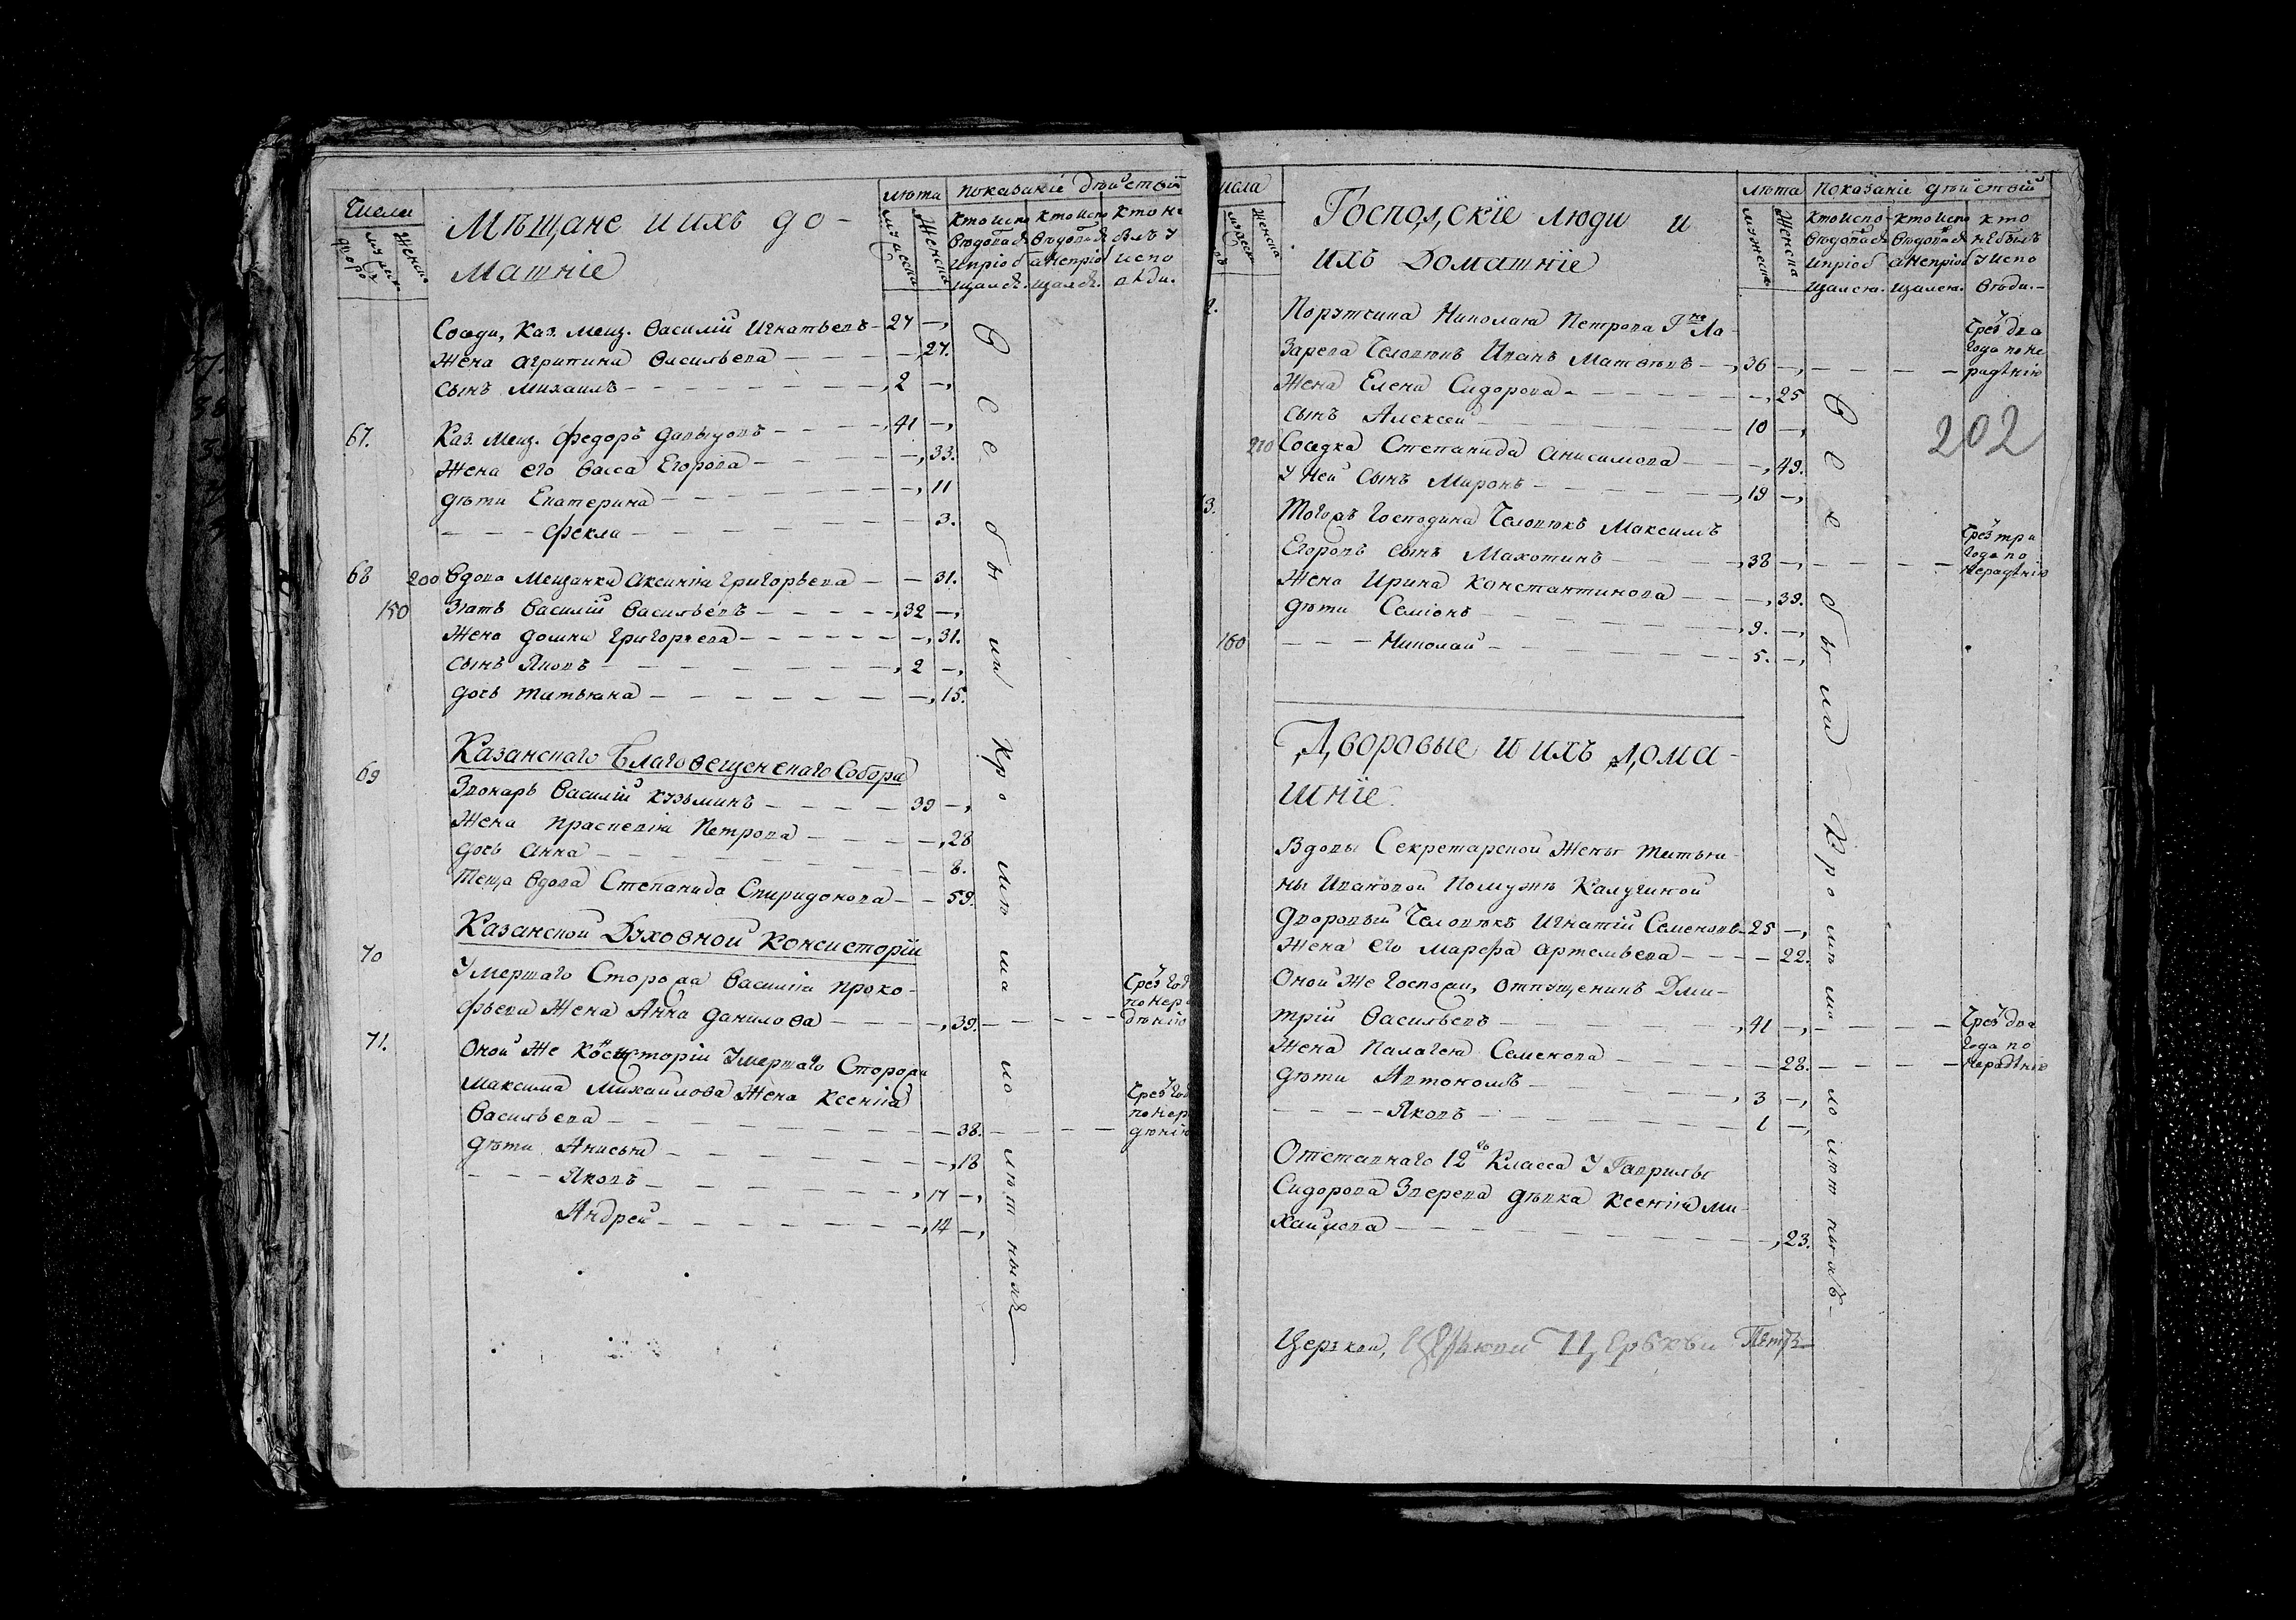 Числа
лѣта
показаніе дѣйствій
дворо
мужи
женска
Мѣщане и ихъ до-
машніе
мужеска
женска
кто испо
вѣдовася
и пріоб
щался.
кто испо
вѣдовася
а не пріоб
щался.
кто не
былъ у
испо
вѣди.
Соседи, Каз. мещ. Василій Игнатьевъ 27 —
Жена Агрипина Васильева — 27.
сынъ Михаилъ 2 —
67. Каз. мещ. Федоръ Давыдовъ 41 —
Жена его Васса Егорова — 33.
дѣти Екатерина — 11
— Фекла — 3.
68 200 Вдова мещанка Аксинья Григорьева — 31.
150 Зять Василій Васильевъ 32 —
Жена Домна Григорьева — 31.
сынъ Яковъ 2 —
дочь Татьяна — 15.
Казанскаго Благовещенскаго Собора
69 Звонарь Василій Кузьминъ 39 —
Жена Прасковія Петрова — 28
дочь Анна — 8.
Теща вдова Степанида Спиридонова — 59.
Казанской Духовной Консисторіи
70 Умершаго Сторожа Василія Проко-
фьева Жена Анна Данилова — 39. —
Чрез год
по нера
дѣнію
71. Оной же Консисторіи Умершаго Сторожа
Максима Михайлова Жена Ксенія
Васильева — 38. —
Чрез год
по нер
дѣнію
дѣти Анисья — 18
— Яковъ 17 —
Андрей 14 —
Все были Кромѣ малолѣтныхъ
исла
лѣта
показаніе дѣйствій
мужеск
женска
Господскіе люди и
ихъ Домашніе
мужеска
женска
кто испо-
вѣдовася
и пріоб
щался.
кто испо
вѣдовася
а не пріоб
щался.
кто
не былъ
у испо
вѣди.
2. Порутчика Николая Петрова Гна Ла-
зарева Человѣкъ Иванъ Матвѣевъ 36 —
Чрез два
года по не
радѣнію
Жена Елена Сидорова — 25
сынъ Алексей 10 —
210 Соседка Степанида Анисимова — 49.
У ней сынъ Миронъ 19 —
3. Тогожъ Господина Человѣкъ Максимъ
Егоровъ сынъ Махотинъ 38 —
Чрез три
года по
нерадѣнію
Жена Ирина Константинова — 39.
дѣти Семіонъ 9. —
160 — Николай 5. —
Дворовые и ихъ дома-
шніе.
Вдовы Секретарской Жены Татья-
ны Ивановой По мужѣ Калугиной
Дворовый Человѣкъ Игнатій Семеновъ 25 —
Жена его Марфа Артемьева — 22.
Оной же Госпожи, отпущеникъ Дми-
трій Васильевъ 41 —
Чрез два
года по
нерадѣнію
Жена Палагея Семенова — 28.
дѣти Автономъ 3 —
— Яковъ 1 —
Отставнаго 12го Класса у Гаврилы
Сидорова Зверева дѣвка Ксенія Ми-
хайлова — 23.
Все были Кромѣ малолѣтныхъ
202
Церкви, Церкви Петр